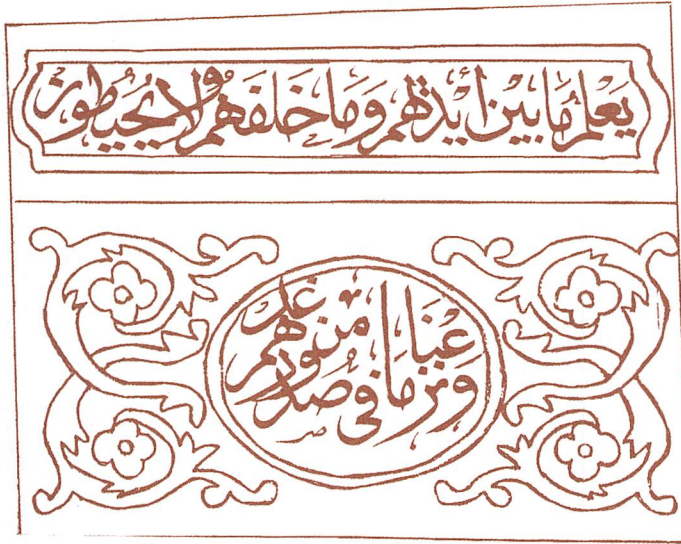 يَعْلَمُ مَا بَيْنَ أَيْدِيهِمْ وَمَا خَلْفَهُمْ وَلَا يُحِيطُونَ
وَنَزَعْنَا مَا فِي صُدُورِهِم مِنْ غِلٍّ